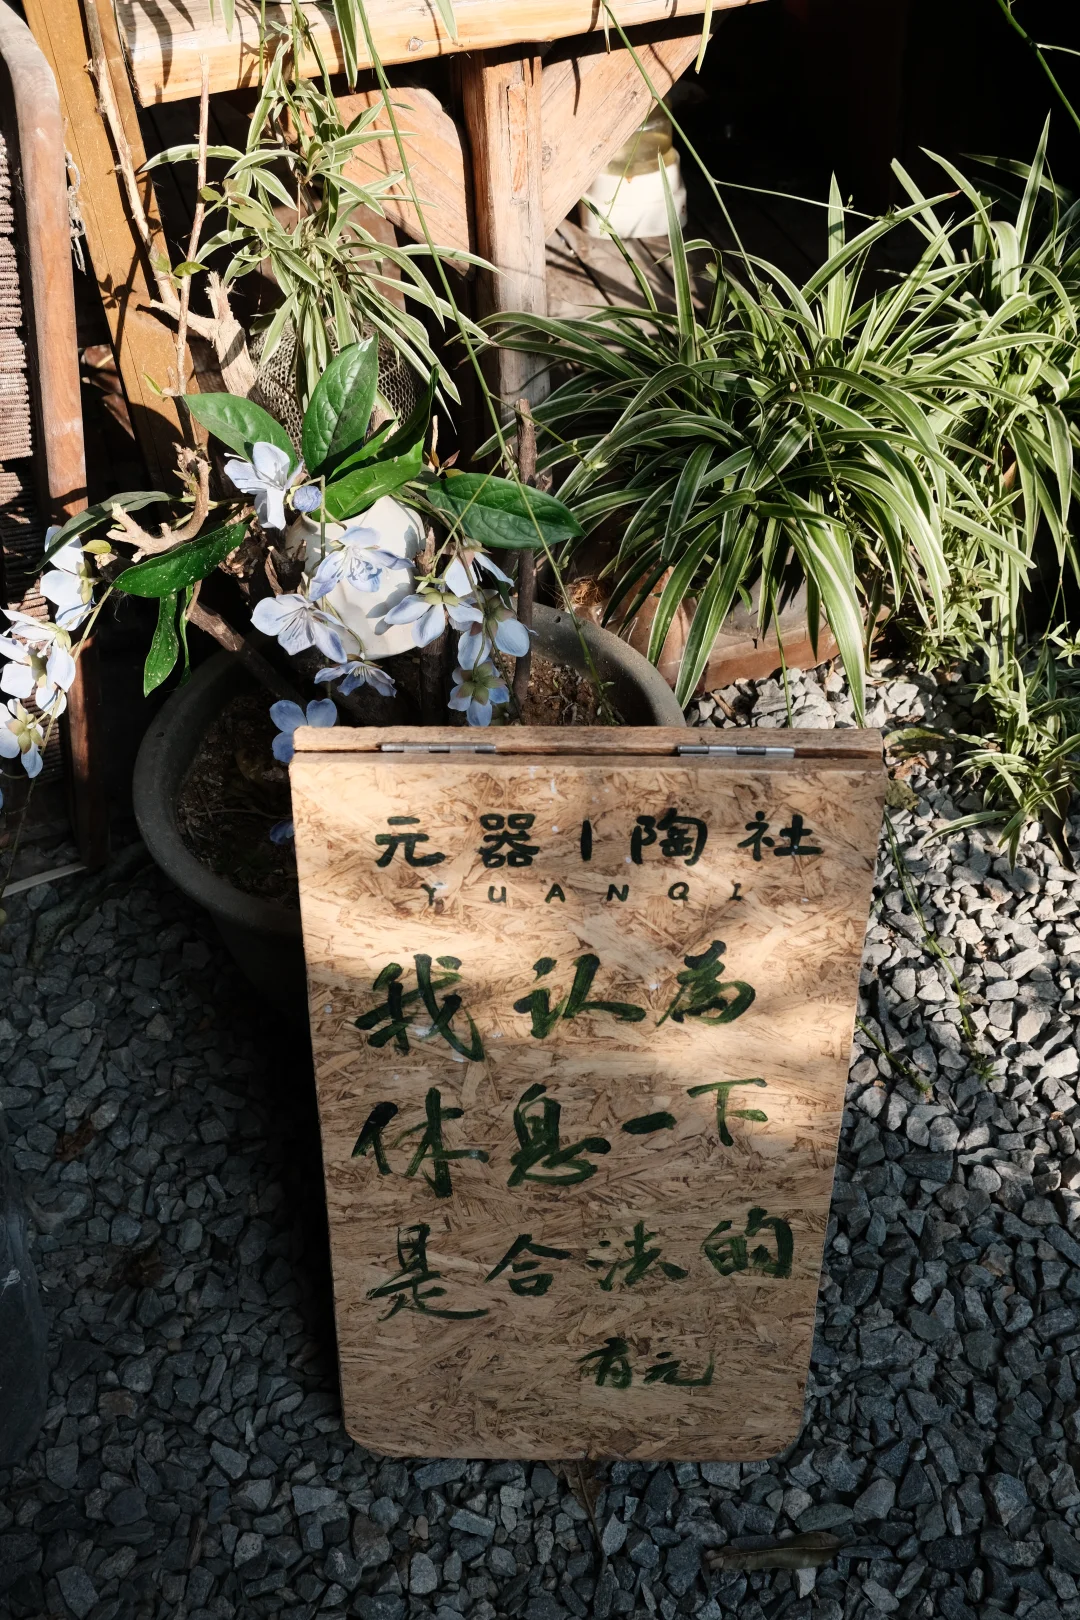 元器|陶社
YUANQI
我认为
休息一下
是合法的
有元